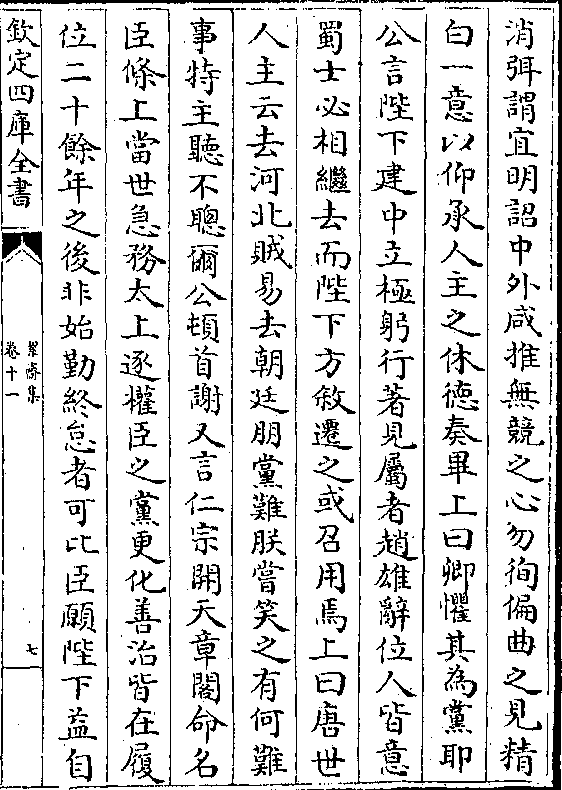 消弭謂宜明詔中外咸推無競之心勿徇偏曲之見精
白一意以仰承人主之休德奏畢上曰卿懼其為黨耶
公言陛下建中立極躬行著見屬者趙雄辭位人皆意
蜀士必相繼去而陛下方敘遷之或召用焉上曰唐世
人主云去河北賊易去朝廷朋黨難朕嘗笑之有何難
事特主聽不聰爾公頓首謝又言仁宗開天章閣命名
臣條上當世急務太上逐權臣之黨更化善治皆在履
位二十餘年之後非始勤終怠者可比臣願陛下益自
欽定四庫全書
集
卷十一
七